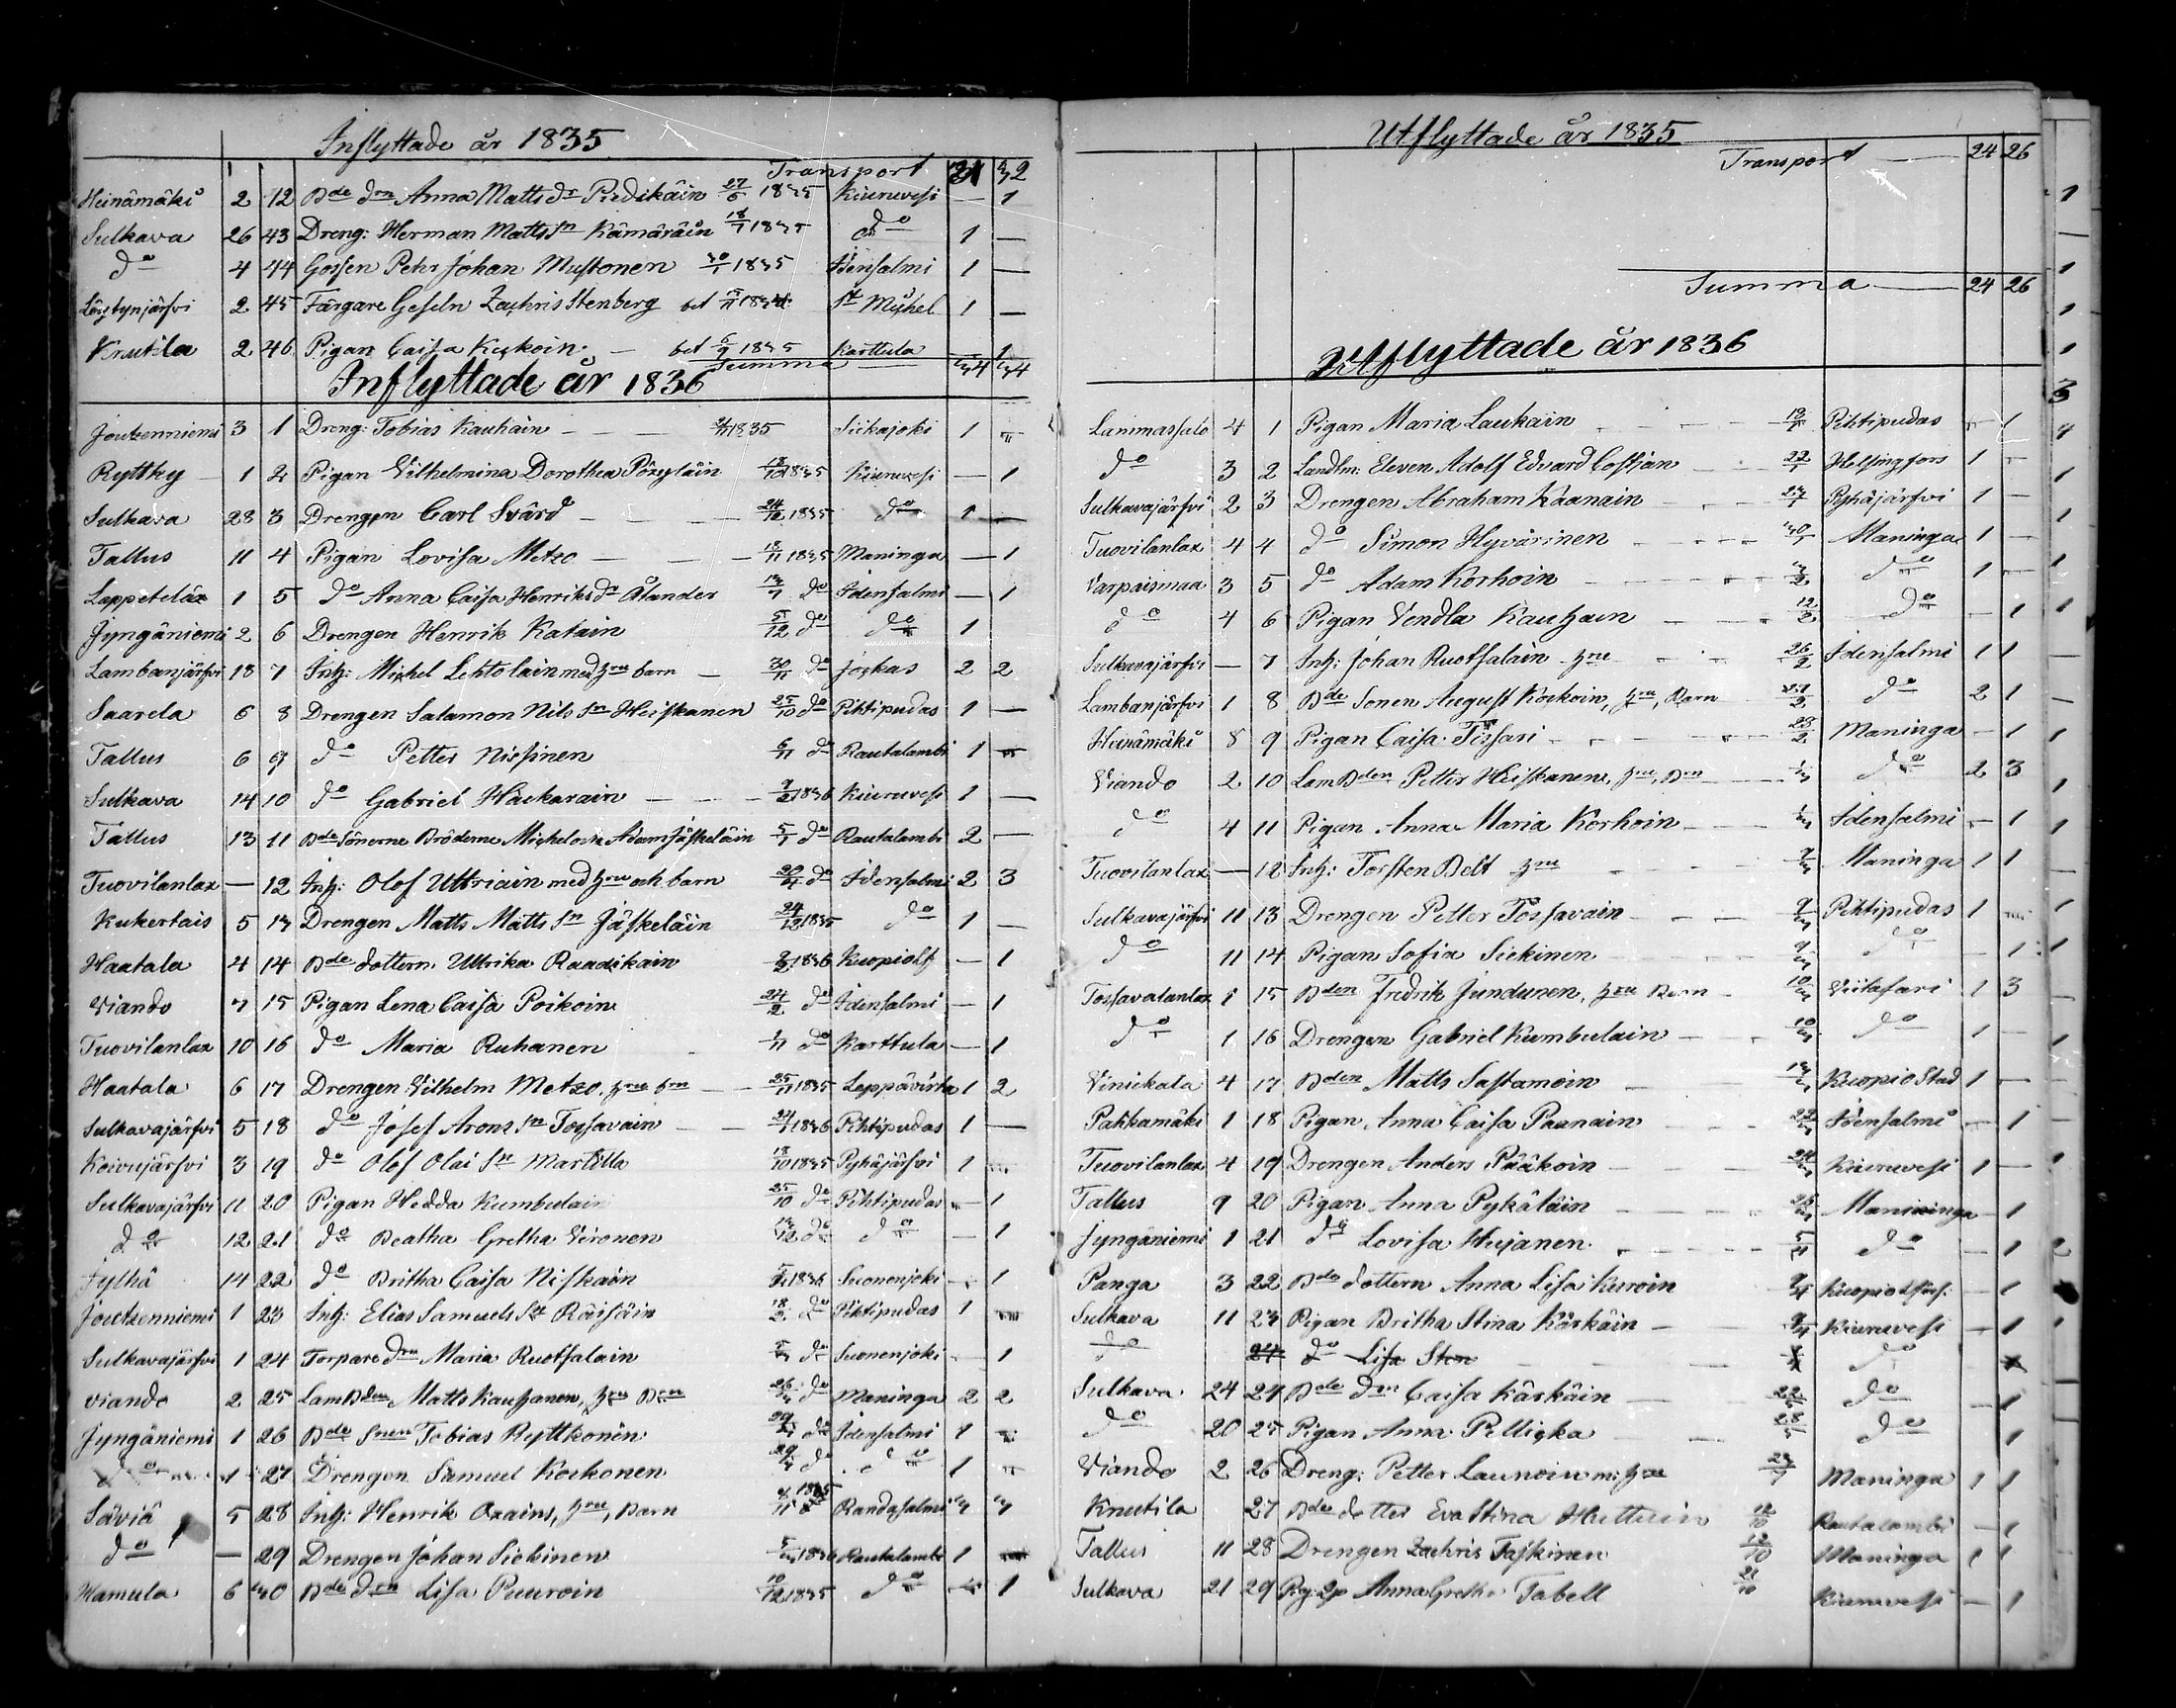 Inflyttade år 1835
Transport 31 32
Heinämäki 2 12 Bde drn Anna Matts dr Pudikäin 27/5 1835 Kiuruvesi — 1
Sulkava 26 43 Dreng: Herman Matts sn Kämäräin 18/7 1835 do 1 —
do 4 44 Gossen Pehr Johan Mustonen 30/1 1835 Idensalmi 1 —
2 45 Färgare Geseln Zachris Stenberg bet St Michel 1 —
Knutila 2 46 Pigan Caisa Kukoin — bet 6/9 1835 Karttula 1
Summa 34 34
Inflyttade år 1836
Joutzenniemi 3 1 Dreng: Tobias Kauhain 1835 Siikajoki 1 —
Ryttky 1 2 Pigan Vilhelmina Dorothea Pöxyläin 18/10 1835 Kiuruvesi — 1
Sulkava 28 3 Drengen Carl Svärd 24/12 1835 do 1 —
Tallus 11 4 Pigan Lovisa Metzo 18/11 1835 Maninga — 1
Lappeteläx 1 5 do Anna Caisa Henriks dr Ålander 13/7 do Idensalmi — 1
Jyngäniemi 2 6 Drengen Henrik Katain 5/12 do do 1
Lambanjärfvi 18 7 Inh: Michel Lehtolain med hru barn 30/11 do Jockas 2 2
Saarela 6 8 Drengen Salamon Nils sn Heiskanen 25/10 do Pihtipudas 1 —
Tallus 6 9 do Petter Nissinen 6/11 do Rautalambi 1 —
Sulkava 14 10 do Gabriel Häckarain 1836 Kiuruvesi 1 —
Tallus 13 11 Bde Sönerne Bröderne Michel och Adam Jäskeläin 5/7 do Rautalambi 2 —
Tuovilanlax — 12 Inh: Olof Uttriain med hru och barn 20/4 do Idensalmi 2 3
Kukertais 5 13 Drengen Matts Matts sn Jäskeläin 24/12 1835 do 1 —
Haatala 4 14 Bde dottern Ullrika Raadikain 1836 Kuopio lf — 1
Viando 7 15 Pigan Lena Caisa Poikoin 24/2 do Idensalmi — 1
Tuovilanlax 10 16 do Maria Ruhanen do Karttula — 1
Haatala 6 17 Drengen Vilhelm Metzo, hru brn 25/11 1835 Leppävirta 1 2
Sulkavajärfvi 5 18 do Josef Arons sn Tossavain 24/1 1836 Pihtipudas 1 —
Koivujärfvi 3 19 do Olof Olai sn Martilla 18/10 1835 Pyhäjärfvi 1 —
Sulkavajärfvi 11 20 Pigan Hedda Kumbulain 25/10 do Pihtipudas — 1
do 12 21 do Beatha Gretha Vironen 13/12 do do — 1
Jylhä 14 22 do Britha Caisa Niskain 1836 Suonenjoki — 1
Joutzenniemi 1 23 Inh: Elias Samuels sn Räisäin 18/2 do Pihtipudas 1 —
Sulkavajärfvi 1 24 Torpare drn Maria Ruotsalain do Suonenjoki — 1
Viando 2 25 Lam Bden Matts Kauhanen, hru Brn 26/3 do Maninga 2 2
Jyngäniemi 1 26 Bde snen Tobias Ryttkonen do Idensalmi 1 —
do 1 27 Drengen Samuel Kockonen do do 1 —
Säviä 5 28 Inh: Henrik Oxains, hru, Barn 1835 Randasalmi 3 3
do — 29 Drengen Johan Siekinen 1836 Rautalambi 1 —
Hamula 6 30 Bde drn Lisa Puuroin 10/12 1835 do — 1
Utflyttade år 1835
Transport — 24 26
Summa — 24 26
Utflyttade år 1836
Lammassalo 4 1 Pigan Maria Laukain 13/1 Pihtipudas — 1
do 3 2 Landtm: Eleven Adolf Edvard Costian 22/1 Helsingfors 1 —
Sulkavajärfvi 2 3 Drengen Abraham Kaanain 27/1 Pyhäjärfvi 1 —
Tuovilanlax 4 4 do Simon Hyvärinen 30/1 Maninga 1 —
Varpaismaa 3 5 do Adam Korhoin 3/2 do 1 —
do 4 6 Pigan Vendla Kauhain 12/2 do — 1
Sulkavajärfvi — 7 Inh: Johan Ruotsalain hru 26/2 Idensalmi 1 1
Lambanjärfvi 1 8 Bde Sonen August Kockoin, hru, Barn do 2 1
Heinämäki 8 9 Pigan Caisa Tissari 28/2 Maninga — 1
Viando 2 10 Lam Bden Petter Heiskanen, hru, Brn 1/3 do 2 3
do 4 11 Pigan Anna Maria Korhoin 1/3 Idensalmi — 1
Tuovilanlax — 12 Inh: Torsten Belt hru Maninga 1 1
Sulkavajärfvi 11 13 Drengen Petter Tossavain 9/3 Pihtipudas 1 —
do 11 14 Pigan Sofia Siekinen 9/3 do — 1
Tossavalanlax 1 15 Bden Fredrik Jundunen, hru Barn 10/3 Viitasari 1 3
do 1 16 Drengen Gabriel Kumbulain 10/3 do 1 —
Vinickala 4 17 Bden Matts Sastamoin 13/3 Kuopio Stad 1 —
Pakkamäki 1 18 Pigan Anna Caisa Paanain 22/3 Idensalmi — 1
Tuovilanlax 4 19 Drengen Anders Pääkoin 24/3 Kiuruvesi 1 —
Tallus 9 20 Pigan Anna Pykäläin 26/3 Maninga — 1
Jyngäniemi 1 21 do Lovisa Hujanen 5/4 do — 1
Panga 3 22 Bde dottern Anna Lisa Kuroin Kuopio lförs: — 1
Sulkava 11 23 Pigan Britha Stina Kärkäin 9/4 Kiuruvesi — 1
do 24 do Lisa Sten do
Sulkava 24 24 Bde drn Caisa Kärkäin do — 1
do 20 25 Pigan Anna Pellicka do 1
Viando 2 26 Dreng: Petter Launoin m: hru Maninga 1 1
Knutila 27 Bde dotter Eva Stina Huttuin 12/10 Rautalambi — 1
Tallus 11 28 Drengen Zachris Taskinen 12/10 Maninga 1 1
Sulkava 21 29 Anna Gretha Tabell 21/10 Kiuruvesi — 1